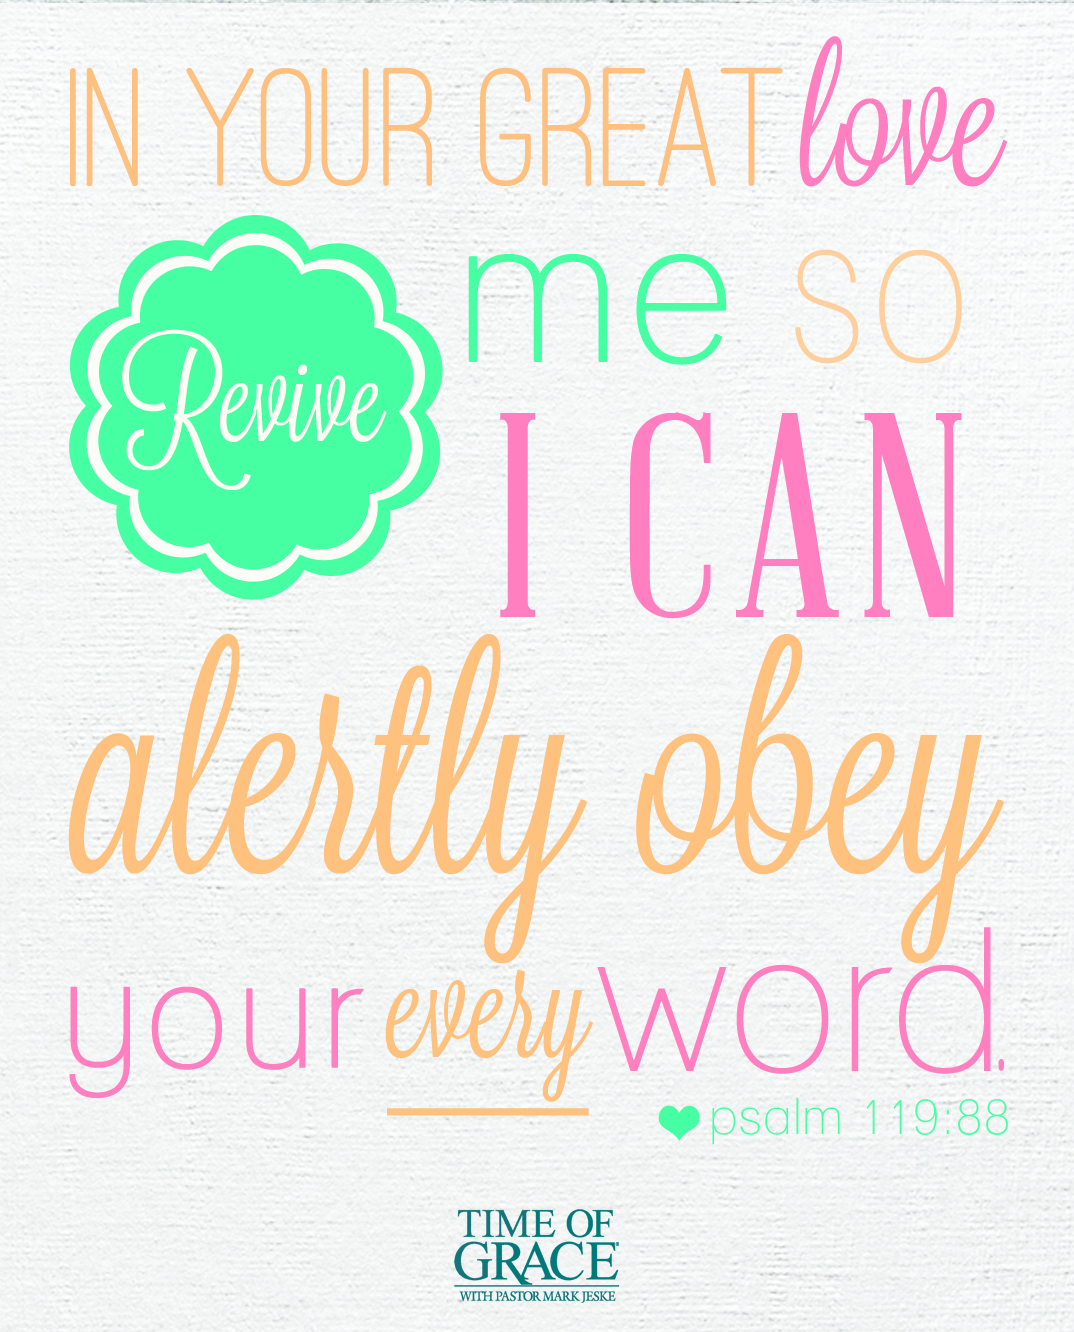 IN YOUR GREAT love
Revive me so
I CAN
alertly obey
your every word.
psalm 119:88
TIME OF
GRACE®
WITH PASTOR MARK JESKE